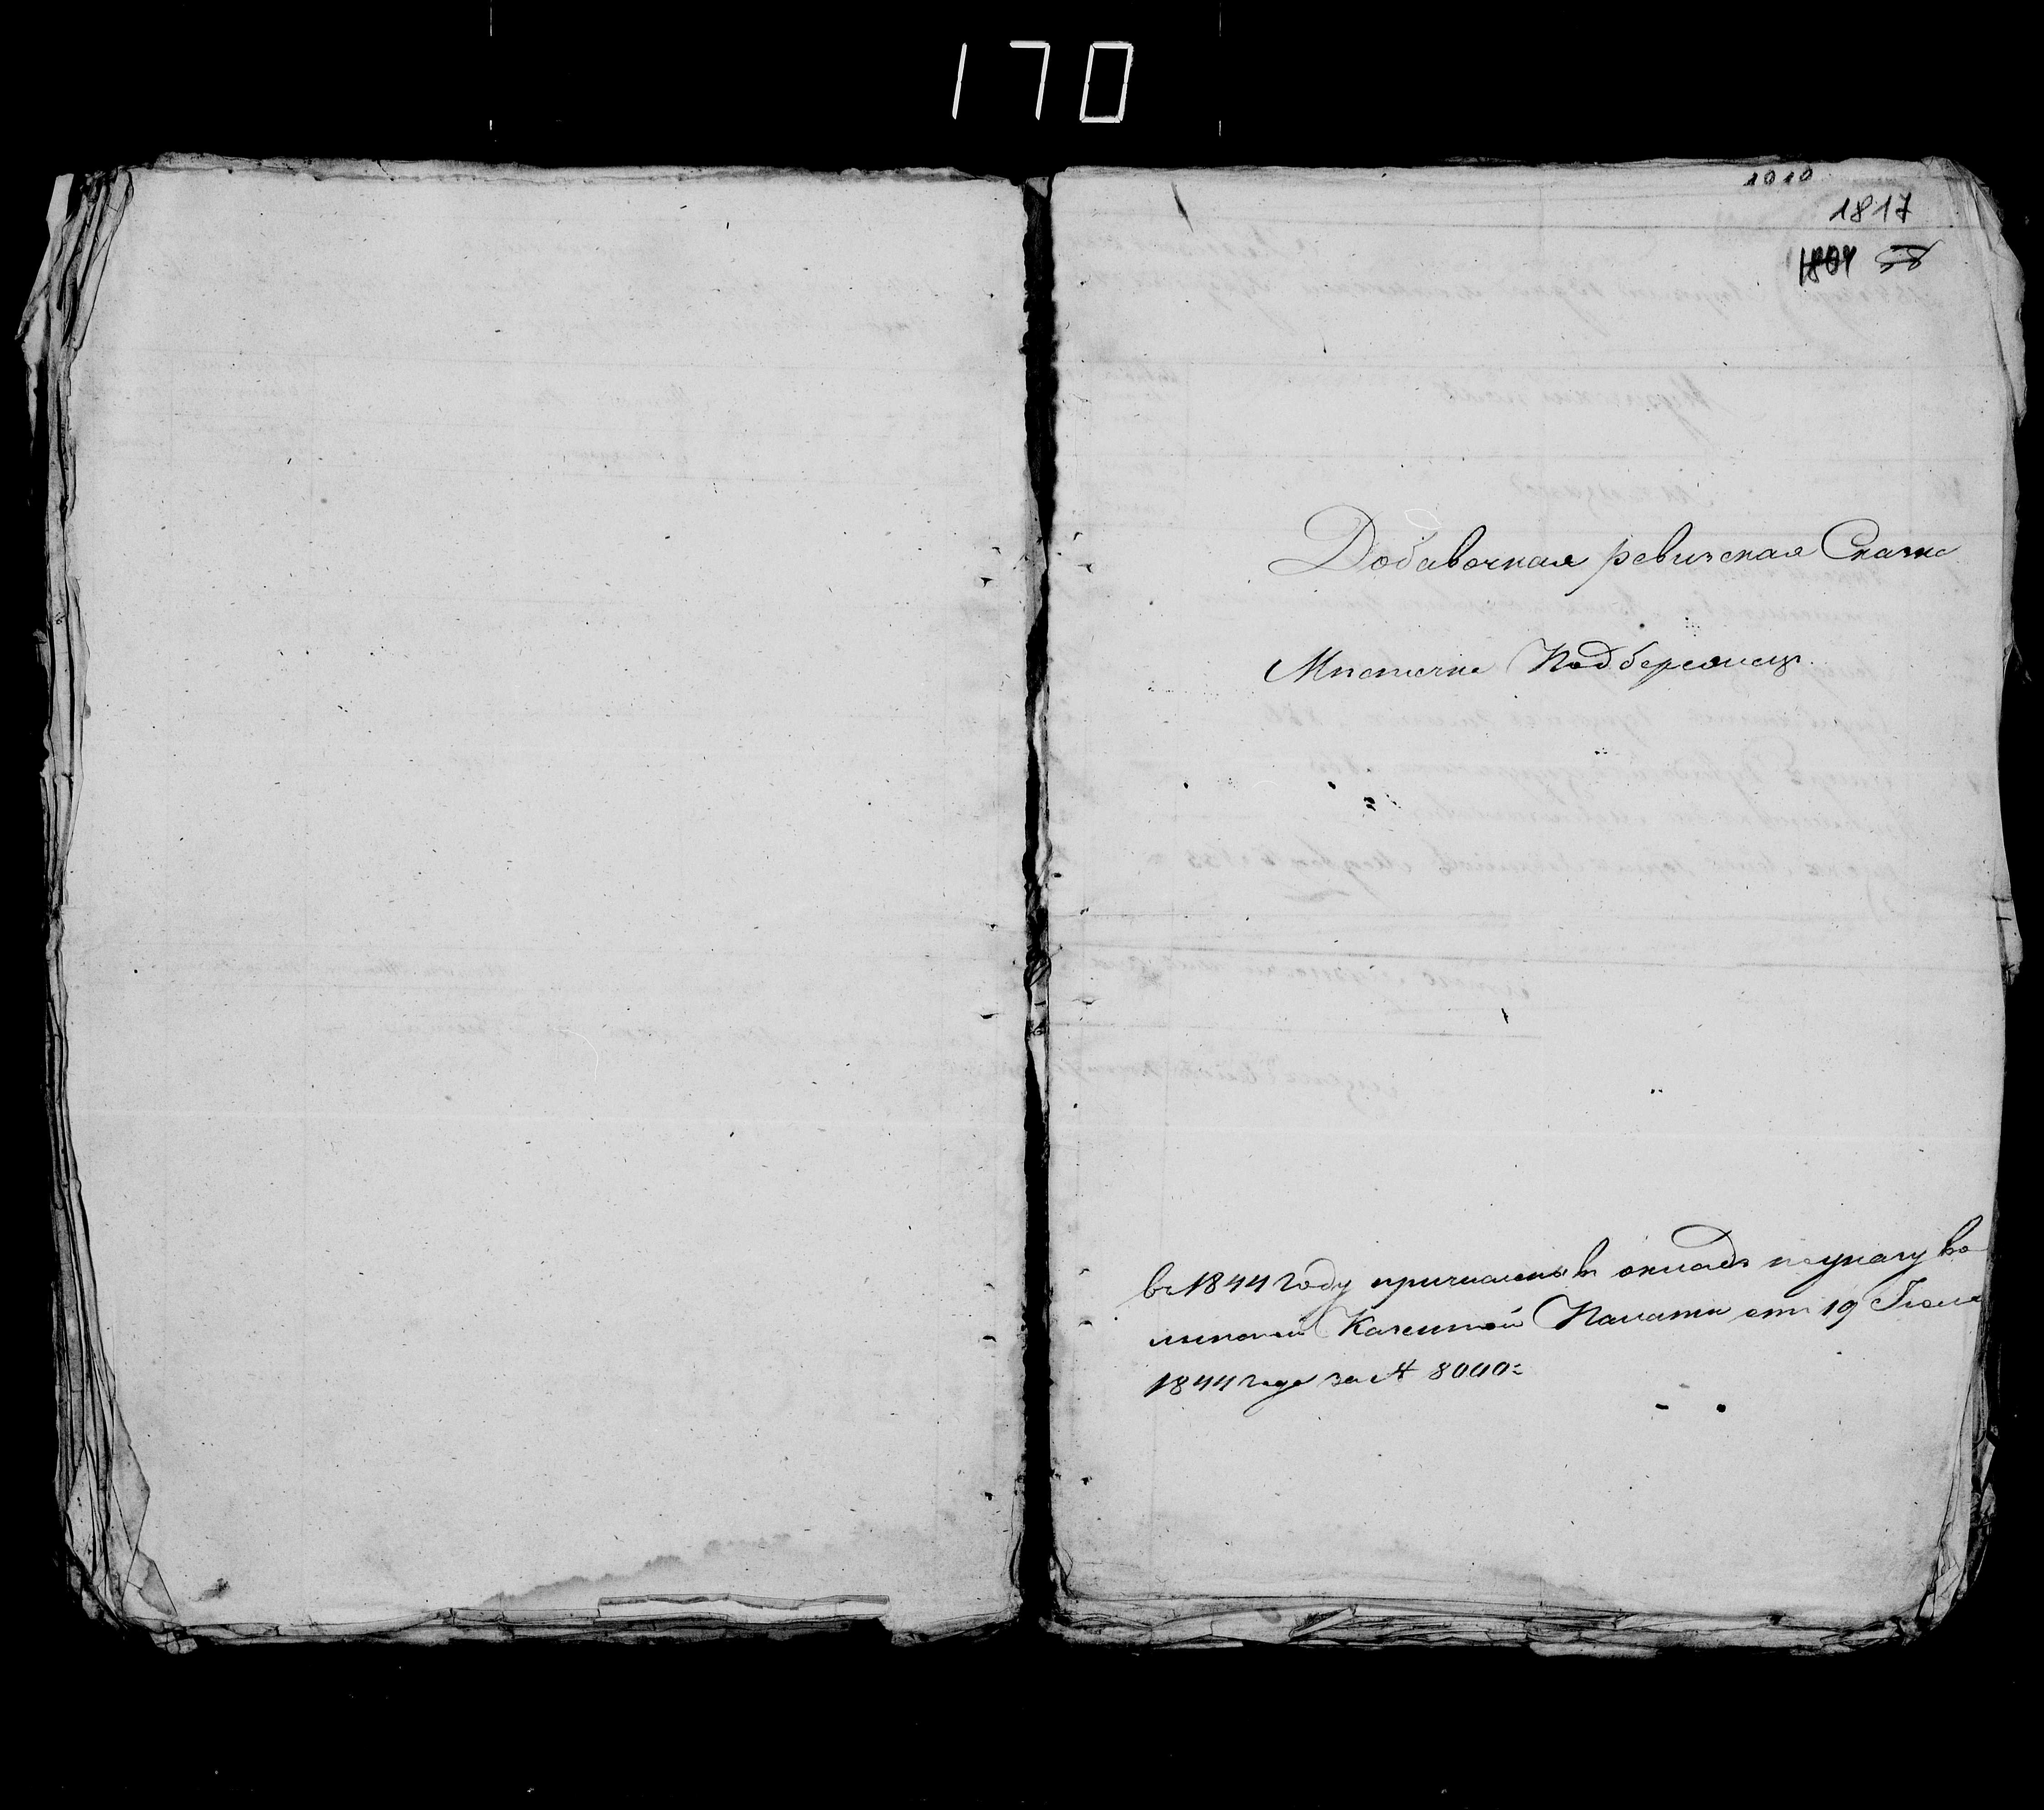 170
1010
1817
1804 58
Добавочная ревизская Сказка
Мѣстечка Подберезецъ.
въ 1844 году причислены въ окладъ по указу Во-
линской Казенной Палаты отъ 19 Іюля
1844 года за № 8000: